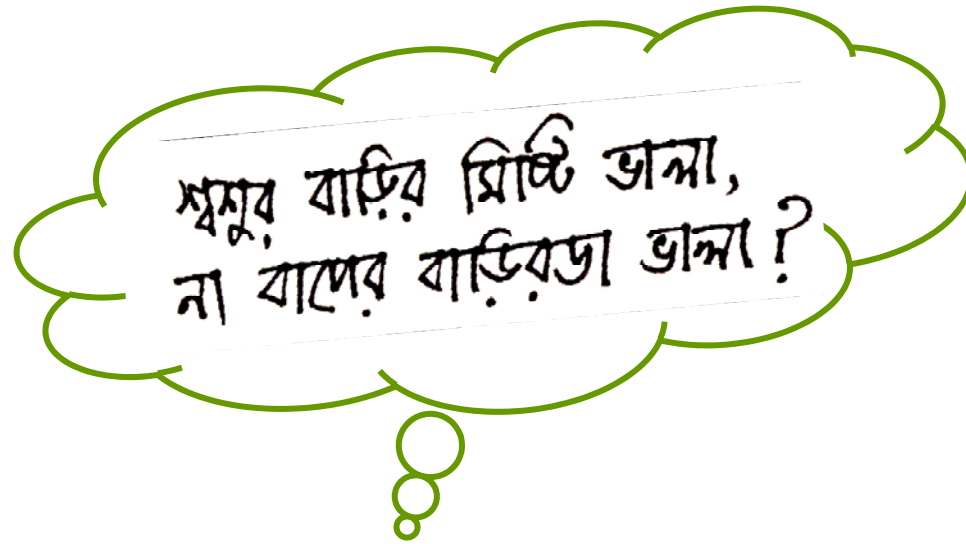 শ্বশুর বাড়ির মিষ্টি ভালা,
না বাপের বাড়িরডা ভালা?